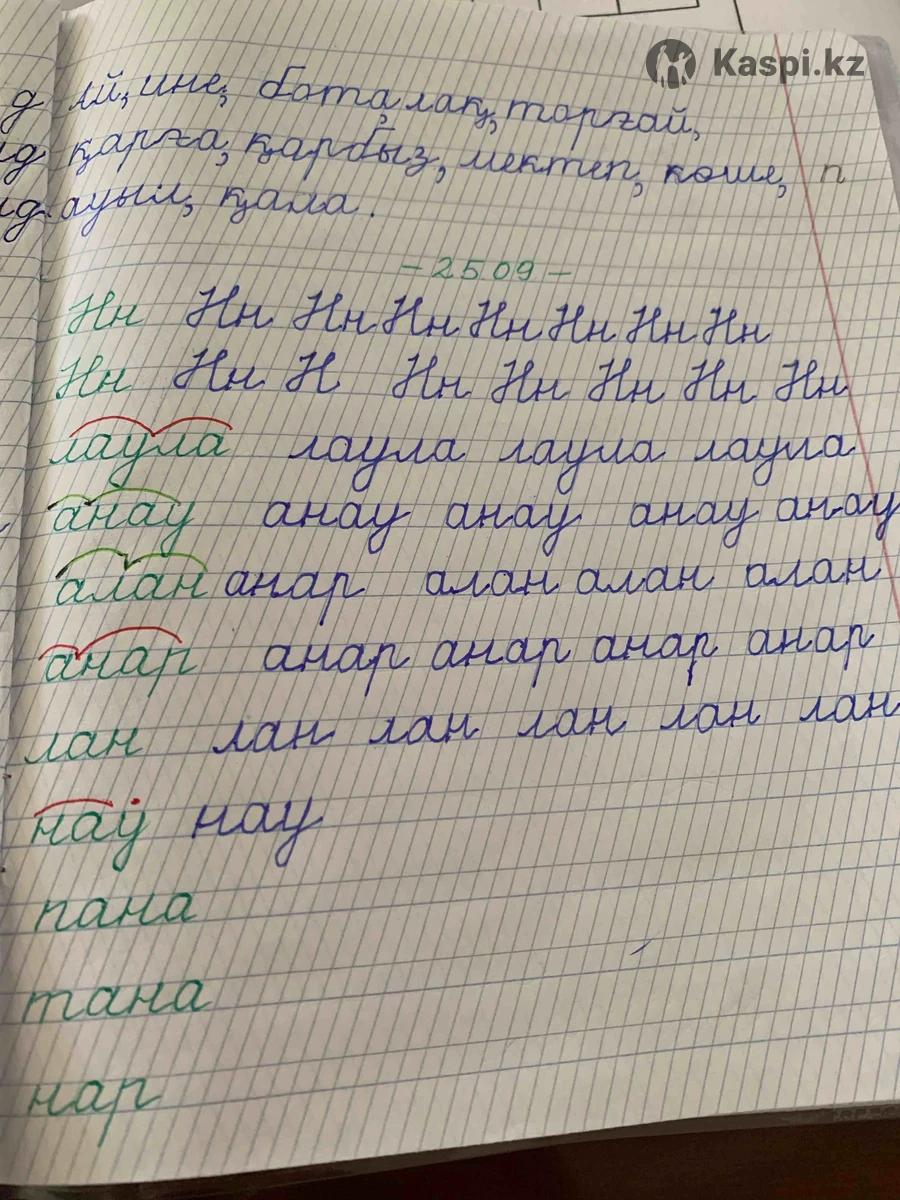 Kaspi.kz
ай, ине, бота, лақ, торғай,
қарға, қарбыз, мектеп, көше, п
ауыл, қала.
- 25 09 -
Нн Нн Нн Нн Нн Нн Нн Нн
Нн Нн Н Нн Нн Нн Нн Нн
лаула лаула лаула лаула
анау анау анау анау анау
алан анар алан алан алан
анар анар анар анар анар
лан лан лан лан лан лан
нау нау
пана
тана
нар